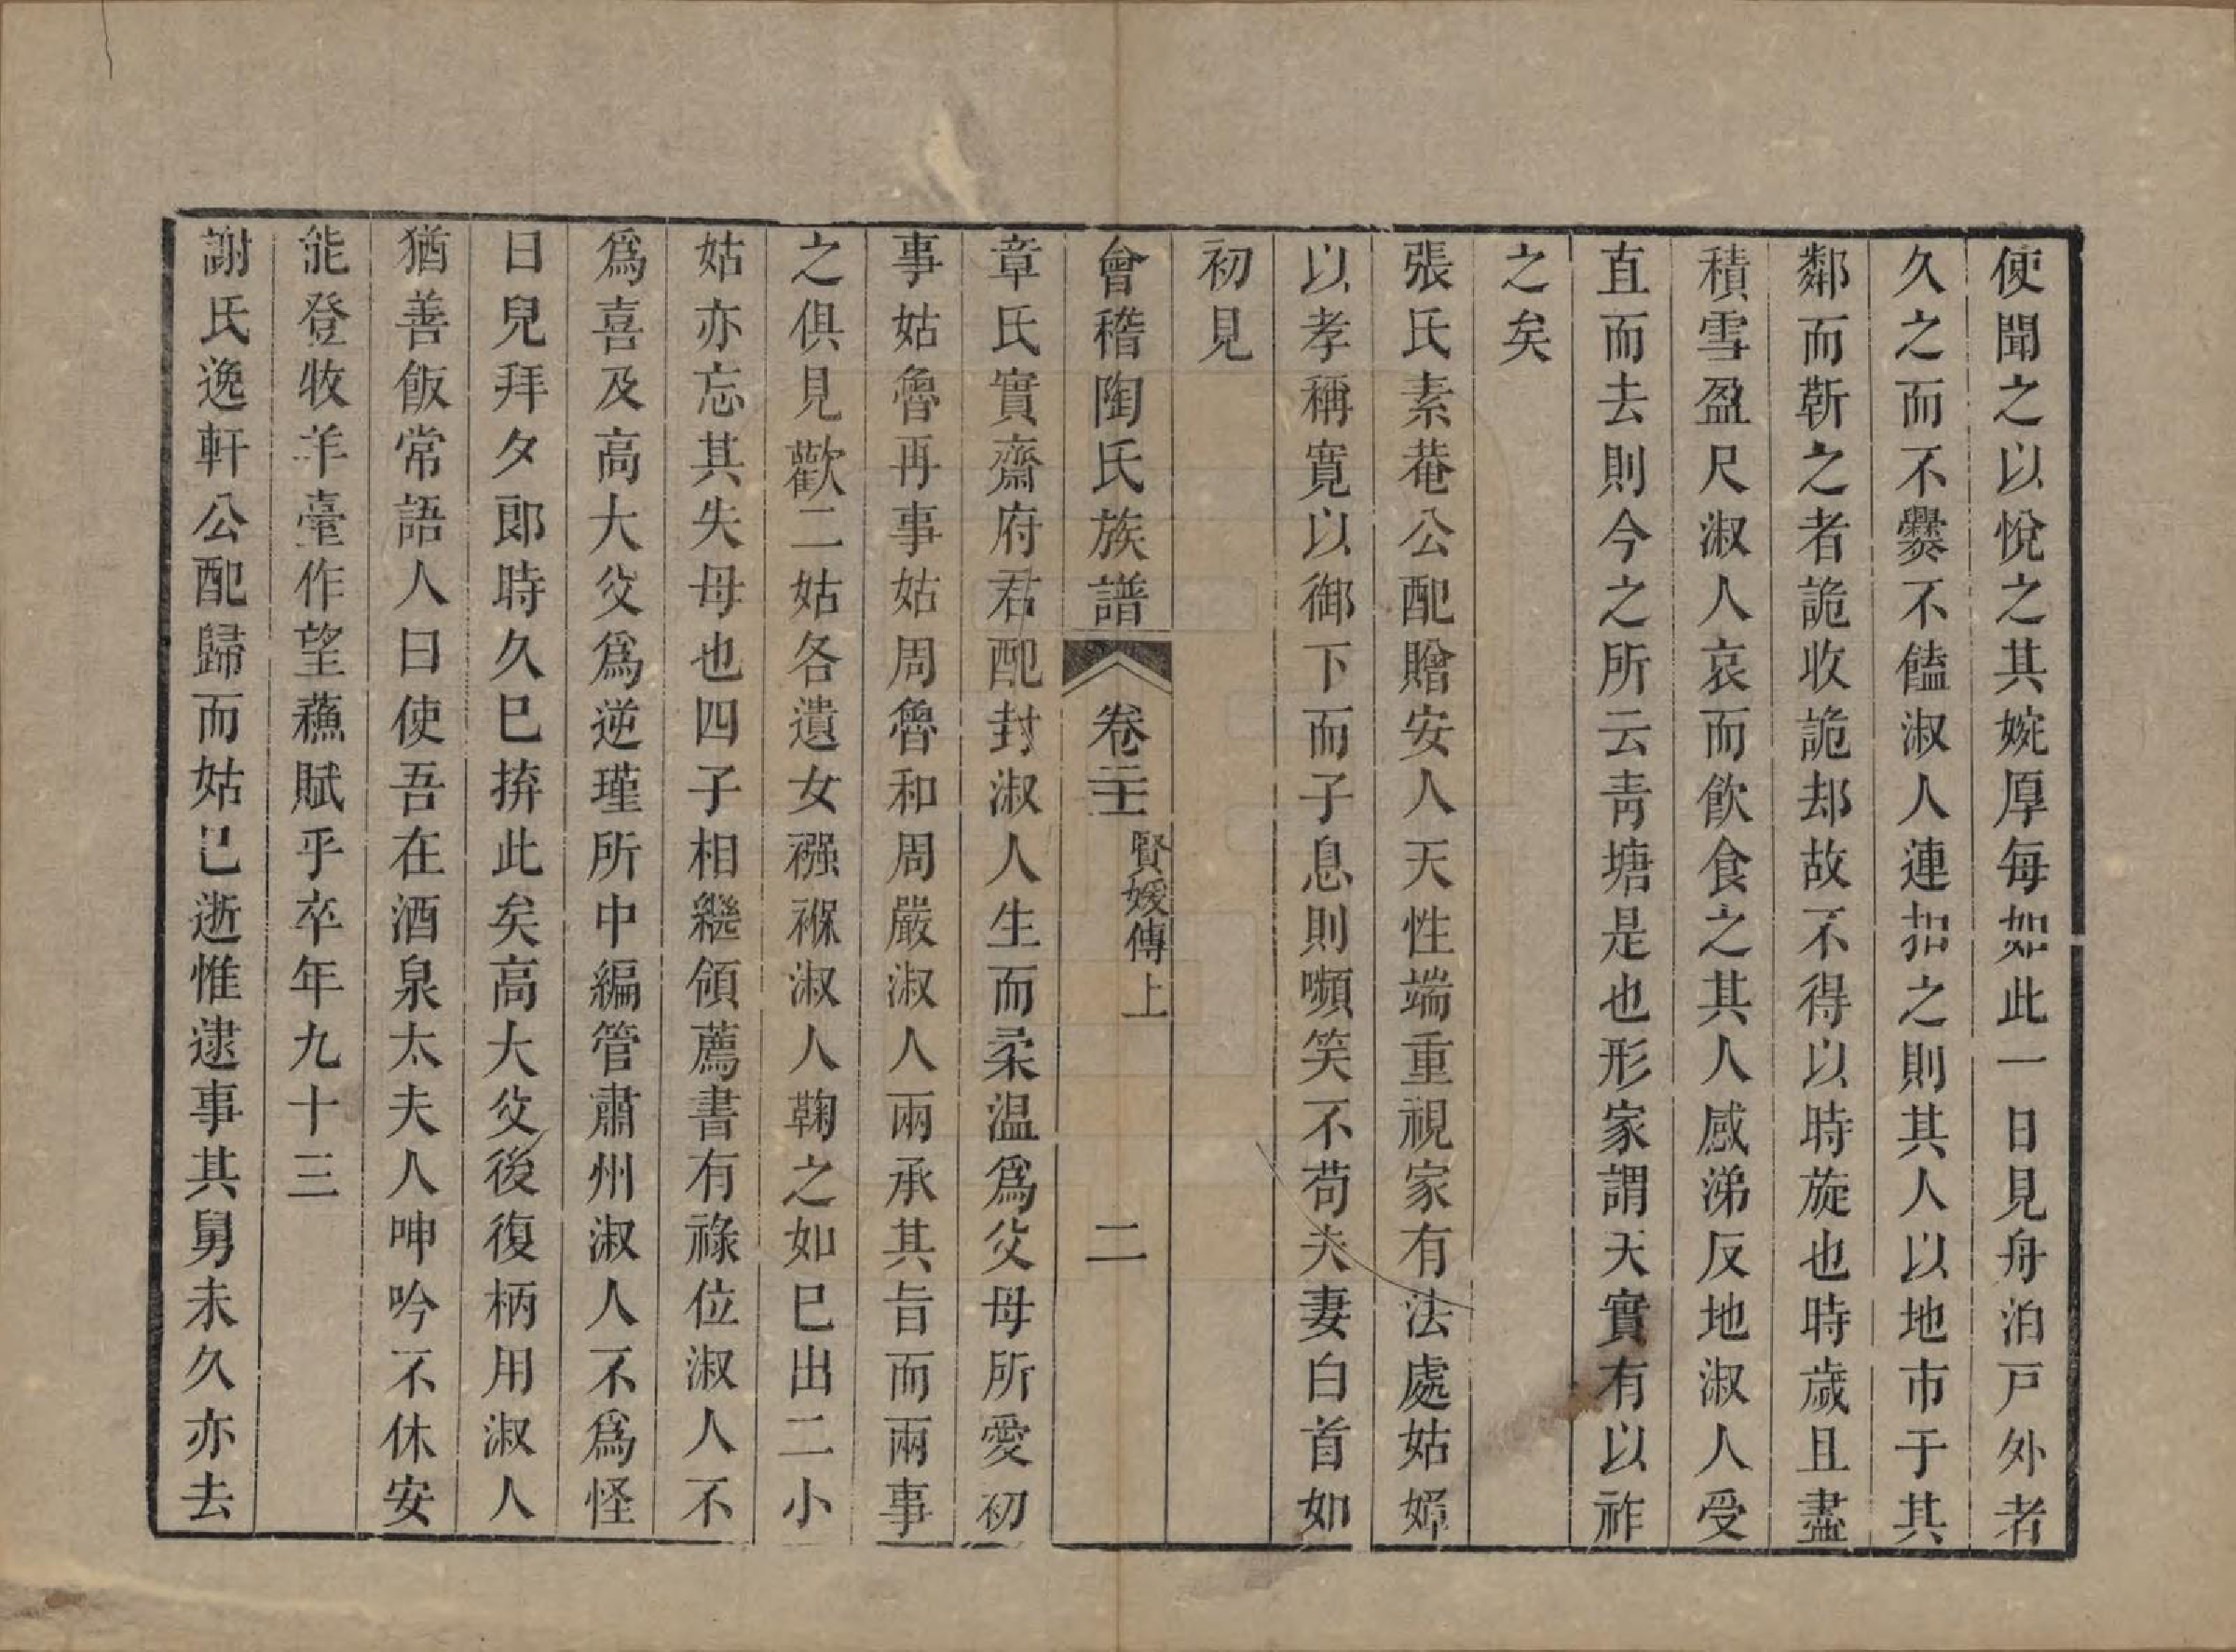 使聞之以悅之其婉厚每如此一日見舟泊戸外者
久之而不爨不饁淑人連扣之則其人以地市于其
鄰而靳之者詭收詭却故不得以時旋也時歲且盡
積雪盈尺淑人哀而飲食之其人感涕反地淑人受
直而去則今之所云青塘是也形家謂天實有以祚
之矣
張氏素菴公配贈安人天性端重視家有法處姑嫜
以孝稱寬以御下而子息則嚬笑不苟夫妻白首如
初見
會稽陶氏族譜 卷二十 賢媛傳上 二
章氏實齋府君配封淑人生而柔温爲父母所愛初
事姑魯再事姑周魯和周嚴淑人兩承其旨而兩事
之俱見歡二姑各遺女襁褓淑人鞠之如巳出二小
姑亦忘其失母也四子相繼領薦書有祿位淑人不
爲喜及高大父爲逆瑾所中編管肅州淑人不爲怪
日兒拜夕郎時久巳拚此矣高大父後復柄用淑人
猶善飯常語人曰使吾在酒泉太夫人呻吟不休安
能登收羊臺作望蘓賦乎卒年九十三
謝氏逸軒公配歸而姑已逝惟逮事其舅未久亦去